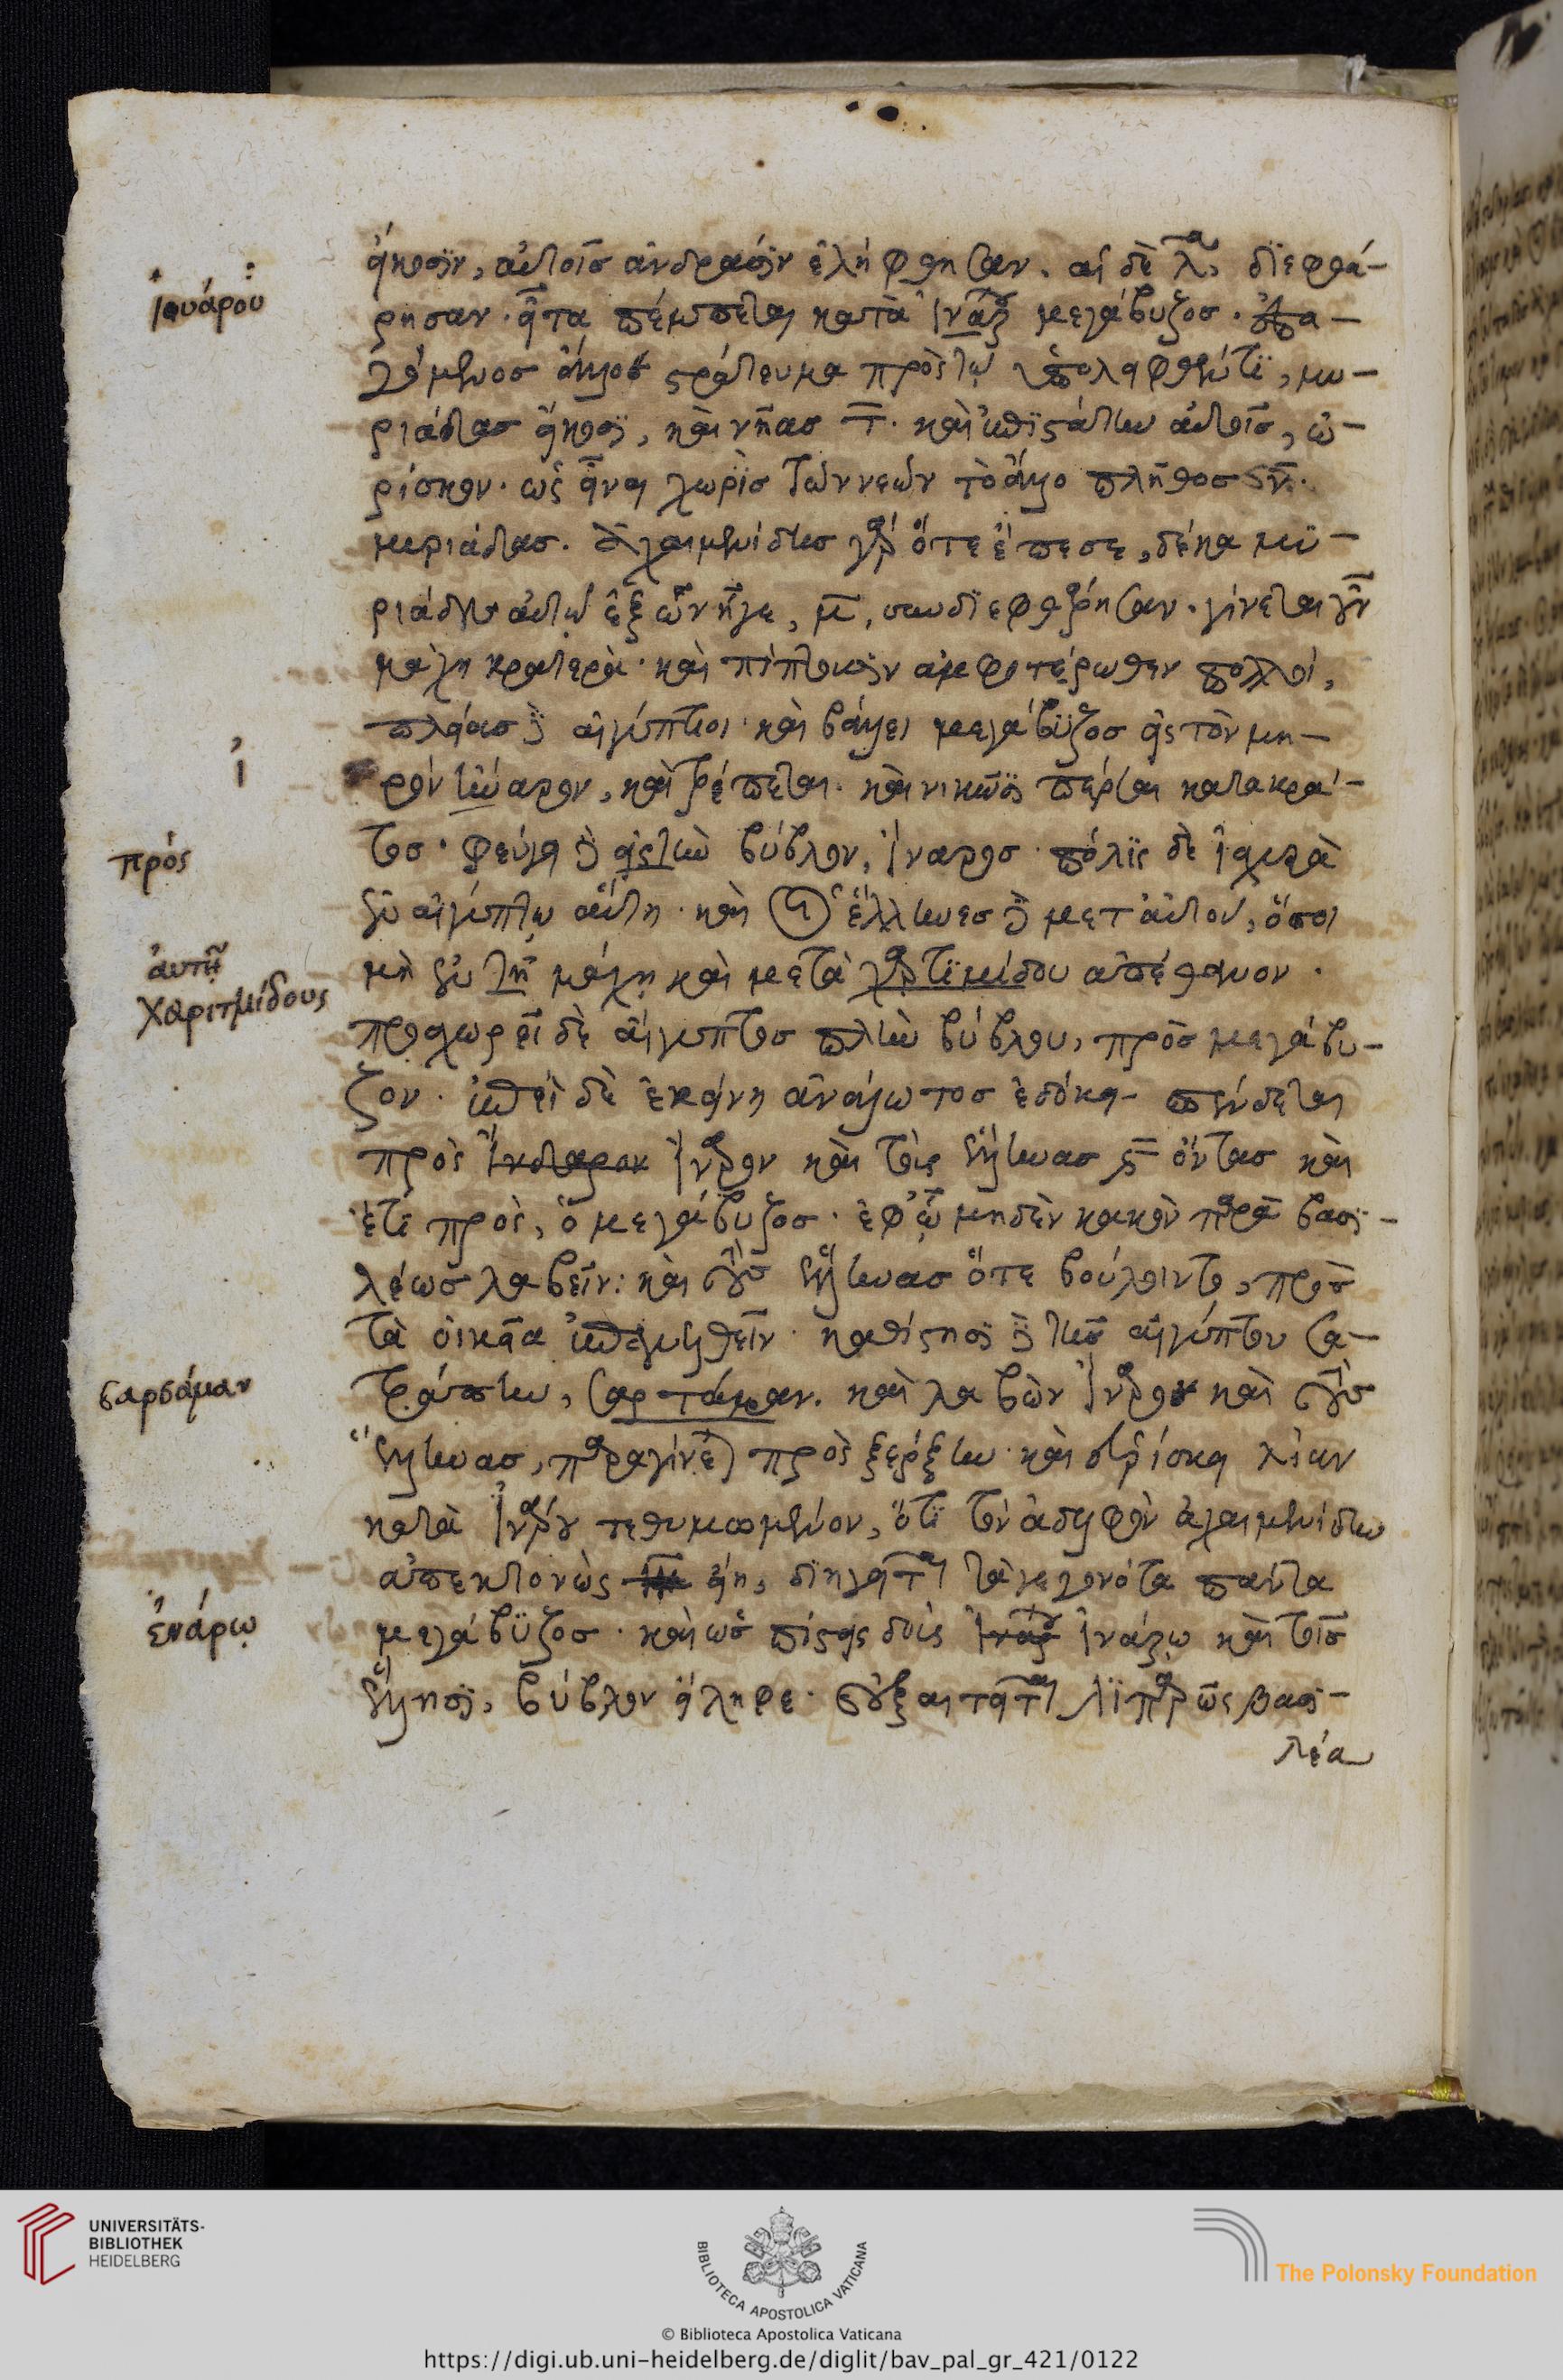 εἴκοσιν, αὐτοῖς ἀνδράσιν ἐλήφθησαν. αἱ δὲ λ, διεφθά-
Ἰνάρου
ρησαν. εἶτα πέμπεται κατὰ Ἰνάρ μεγάβυζος. ἐπα-
γόμενος ἄλλο στράτευμα πρὸς τῷ ὑπολειφθέντι, μυ-
ριάδας εἴκοσι, καὶ νῆας τ. καὶ ἐπιστάτην αὐτοῖς, ὠ-
ρίσκον. ὡς εἶναι χωρὶς τῶν νεῶν τὸ ἄλλο πλῆθος ν.
μυριάδας. ἀχαιμενίδης γὰρ ὅτε ἔπεσε, δέκα μυ-
ριάδες αὐτῷ ἐξ ὧν ἦγε, μ, συνδιεφθάρησαν. γίνεται γοῦν
μάχη κρατερὰ. καὶ πίπτουσιν ἀμφοτέρωθεν πολλοί,
πλείους δὲ αἰγύπτιοι. καὶ βάλλει μεγάβυζος εἰς τὸν μη-
ἰ
ρὸν ἥναρον, καὶ τρέπεται. καὶ νικῶσι πέρσαι κατακρά-
πρός
τος. φεύγει δὲ εἰς τὴν βύβλον, ἴναρος. πόλις δὲ ἰσχυρὰ
ἐν αἰγύπτῳ αὕτη. καὶ οἱ ἕλληνες δὲ μετ αὐτοῦ, ὅσοι
αὐτῇ
χαριτμίδους
μὴ ἐν τῇ μάχῃ καὶ μετὰ χαρτιμίδου ἀπέθανον.
προχωρεῖ δὲ αἴγυπτος πλὴν βύβλου, πρὸς μεγάβυ-
ζον. ἐπεὶ δὲ ἐκείνη ἀνάλωτος ἐδόκει σπένδεται
πρὸς ἴναρον καὶ τοὺς ἕλληνας ς ὄντας καὶ
ἔτι πρὸς, ὁ μεγάβυζος. ἐφ' ᾧ μηδὲν κακὸν παρὰ βασι-
λέως λαβεῖν: καὶ τοὺς ἕλληνας ὅτε βούλοιντο, πρὸς
τὰ οἰκεῖα ἐπανελθεῖν. καθίστησι δὲ τῆς αἰγύπτου σα-
σαρσάμαν
τράπην, σαρτάμαν. καὶ λαβὼν ἴναρον καὶ τοὺς
ἕλληνας, παραγίνεται πρὸς ξέρξην. καὶ εὑρίσκει λίαν
κατὰ ἰνάρου τεθυμωμένον, ὅτι τὸν ἀδελφὸν ἀχαιμενίδην
ἀπεκτονὼς εἴη, διηγεῖται τὰ γεγονότα πάντα
ἐνάρῳ
μεγάβυζος. καὶ ὡς πίστεις δοὺς ἰνάρῳ καὶ τοῖς
ἕλλησι, βύβλον εἴληφε. ἐξαιτεῖται λιπαρῶς βασι-
λέα
UNIVERSITÄTS-
BIBLIOTHEK
HEIDELBERG
BIBLIOTECA APOSTOLICA VATICANA
The Polonsky Foundation
© Biblioteca Apostolica Vaticana
https://digi.ub.uni-heidelberg.de/diglit/bav_pal_gr_421/0122